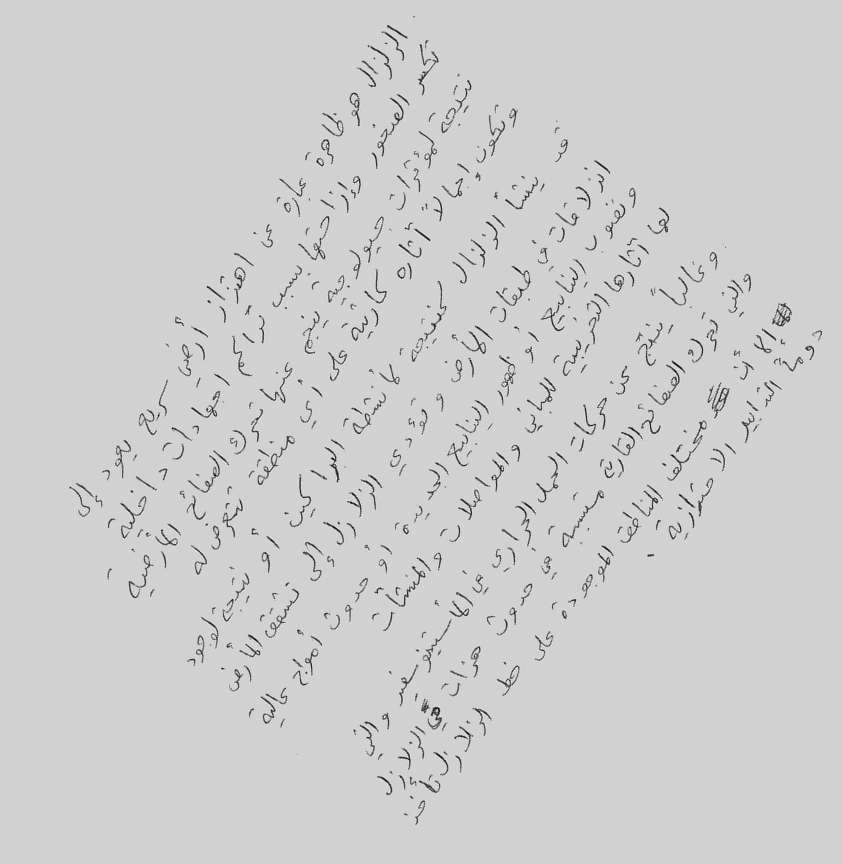 الزلزال هو ظاهرة عبارة عن اهتزاز أرضي سريع يعود إلى
تكسر الصخور وإزاحتها بسبب تراكم اجهادات داخلية
نتيجة لمؤثرات جيولوجية ينجم عنها تحرك الصفائح الأرضية
وتكون إجمالاً آثاره كارثية على أي منطقة تتعرض له
قد ينشأ الزلزال كنتيجة لأنشطة البراكين أو نتيجة لوجود
انزلاقات في طبقات الأرض وتؤدي الزلازل إلى تشقق الأرض
ونضوب الينابيع أو ظهور الينابيع الجديدة أو حدوث أمواج عالية
لها آثارها التخريبية للمباني والمواصلات والمنشآت
وغالباً ينتج عن حركات الحمل الحراري في الأستينوسفير والتي
والتي تحرك الصفائح القارية متسببة في حدوث هزات في الزلازل
إلا أن مختلف المناطق الموجودة على خط الزلازل تأخذ
دومًا التدابير الاحترازية .